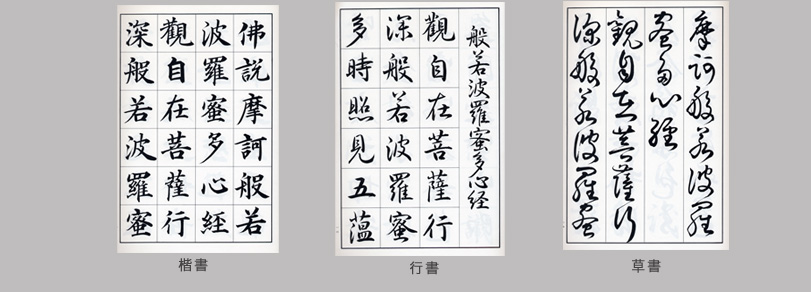 佛說摩訶般若
波羅蜜多心經
觀自在菩薩行
深般若波羅蜜
楷書
般若波羅蜜多心経
觀自在菩薩行
深般若波羅蜜
多時照見五蘊
行書
摩訶般若波羅
蜜多心經
觀自在菩薩行
深般若波羅蜜
草書